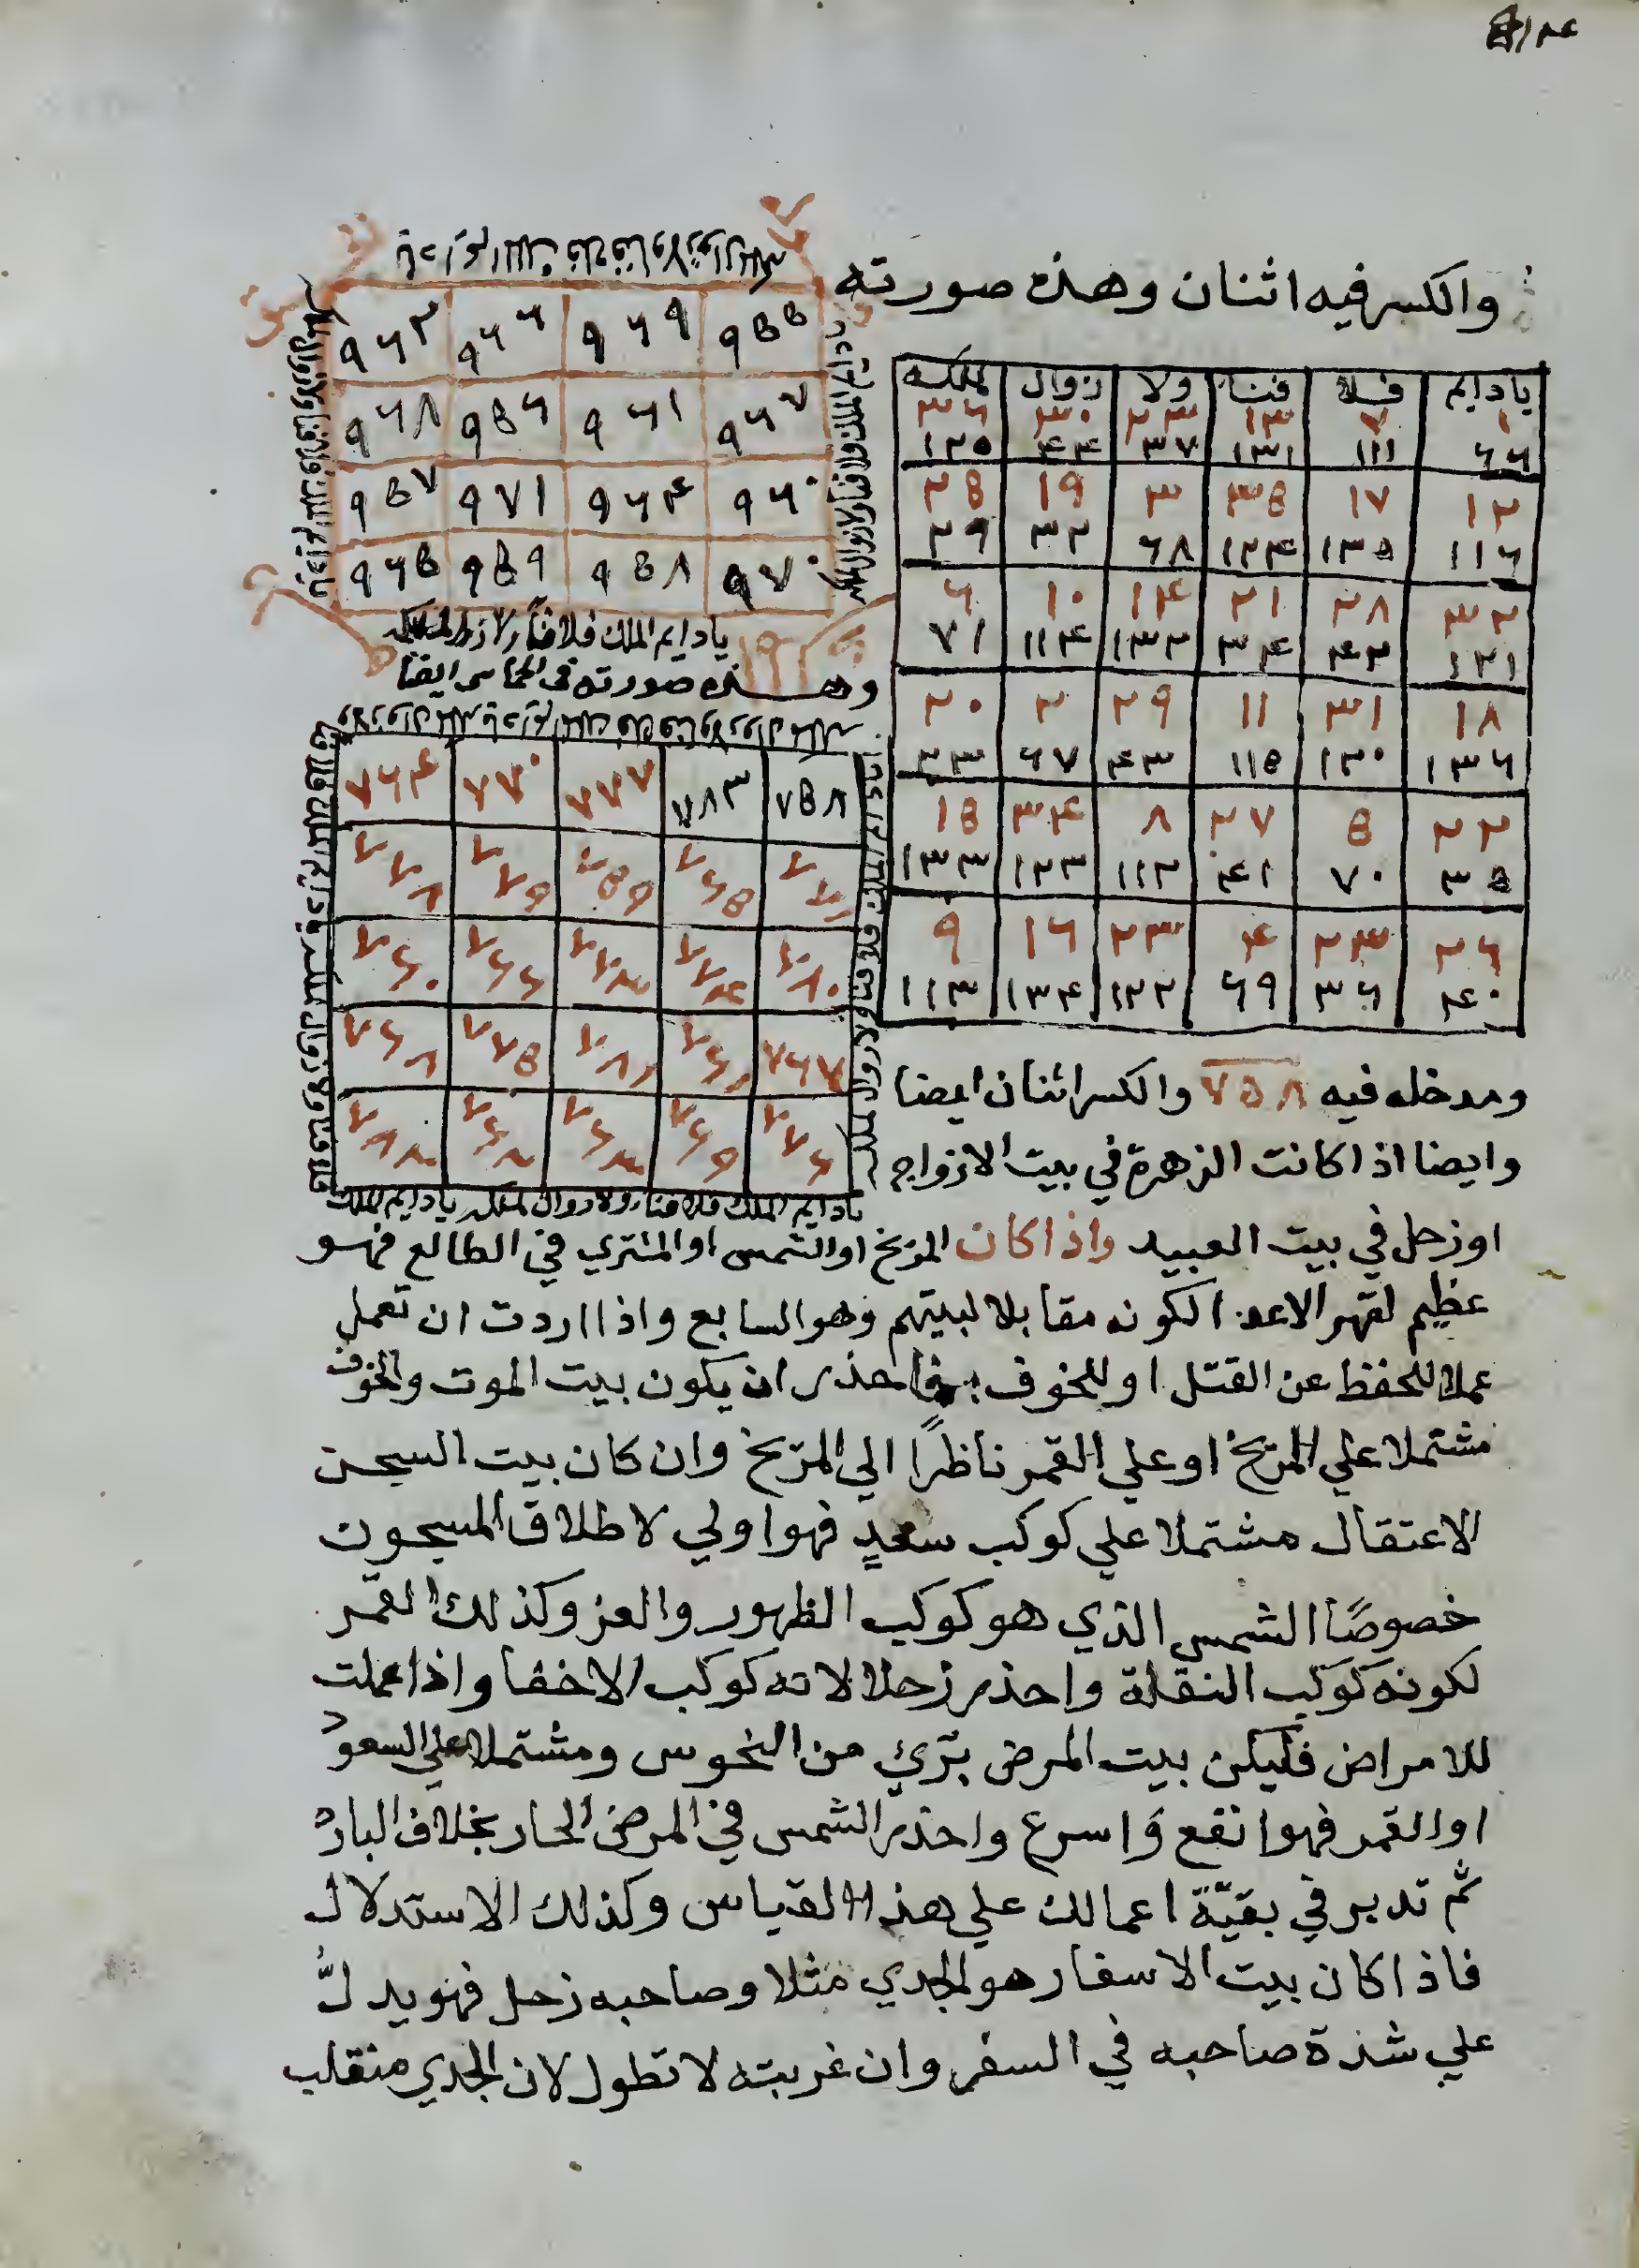 والكسر فيه اثنان وهذه صورته
يادايم فلا فنا ولا زوال لملكه
١ ٧ ١٣ ٢٣ ٣٠ ٣٦
٦٦ ١١١ ١٣١ ٣٧ ٤٤ ١٢٥
١٢ ١٧ ٣٥ ٣ ١٩ ٢٥
١١٦ ١٣٥ ١٢٤ ٦٨ ٣٢ ٣٩
٣٢ ٢٨ ٢١ ١٤ ١٠ ٦
١٢١ ٤٢ ٣٤ ١٣٢ ١١٤ ٧١
١٨ ٣١ ١١ ٢٩ ٢ ٢٠
١٣٦ ١٢٠ ١١٥ ٤٣ ٦٧ ٣٣
٢٢ ٥ ٢٧ ٨ ٣٤ ١٥
٣٥ ٧٠ ٤١ ١١٢ ١٢٣ ١٣٣
٢٦ ٢٣ ٤ ٢٣ ١٦ ٩
٤٠ ٣٦ ٦٩ ١٢٢ ١٣٤ ١١٣
٩٥٥ ٩٦٩ ٩٦٦ ٩٦٢
٩٦٧ ٩٦١ ٩٥٦ ٩٦٨
٩٦٠ ٩٦٤ ٩٧١ ٩٥٧
٩٧٠ ٩٥٨ ٩٥٩ ٩٦٥
يادايم الملك فلا فناً ولا زوال لملكه
وهذه صورته في الخماسي ايضا
٧٥٨ ٧٨٣ ٧٧٧ ٧٧٠ ٧٦٤
٧٦٥ ٧٥٩ ٧٧٩
٧٨٠ ٧٧٤ ٧٦٦ ٧٦٠
٧٦٧ ٧٦١ ٧٨١ ٧٧٥ ٧٦٨
٧٧٦ ٧٦٩
يادايم الملك فلا فنا ولا زوال لملكه يادايم الملك
ومدخله فيه ٧٥٨ والكسر اثنان ايضا
وايضا اذا كانت الزهرة في بيت الازواج
اوزحل في بيت العبيد واذا كان المريخ اوالشمس اوالمشتري في الطالع فهو
عظيم لقهر الاعدا لكونه مقابلا لبيتهم وهو السابع واذا اردت ان تعمل
عملا للحفظ عن القتل او للخوف فاحذر ان يكون بيت الموت والخوف
مشتملا علي المريخ او علي القمر ناظرًا الي المريخ وان كان بيت السجن
الاعتقال مشتملا علي كوكب سعيدٍ فهو اولي لاطلاق المسجون
خصوصًا الشمس الذي هو كوكب الظهور والعز وكذلك القمر
لكونه كوكب النقلة واحذر زحلا لانه كوكب الاخفا واذا عملت
للامراض فليكن بيت المرض بَريٌ من النحوس ومشتملا علي السعود
او القمر فهو انفع وَاسرع واحذر الشمس في المرض الحار بخلاف البارد
ثم تدبر في بقيّة اعمالك علي هذا القياس وكذلك الاستدلال
فاذا كان بيت الاسفار هو الجدي مثلا وصاحبه زحل فهو يدلُّ
علي شدة صاحبه في السفر وان غربته لا تطول لان الجدي منقلب